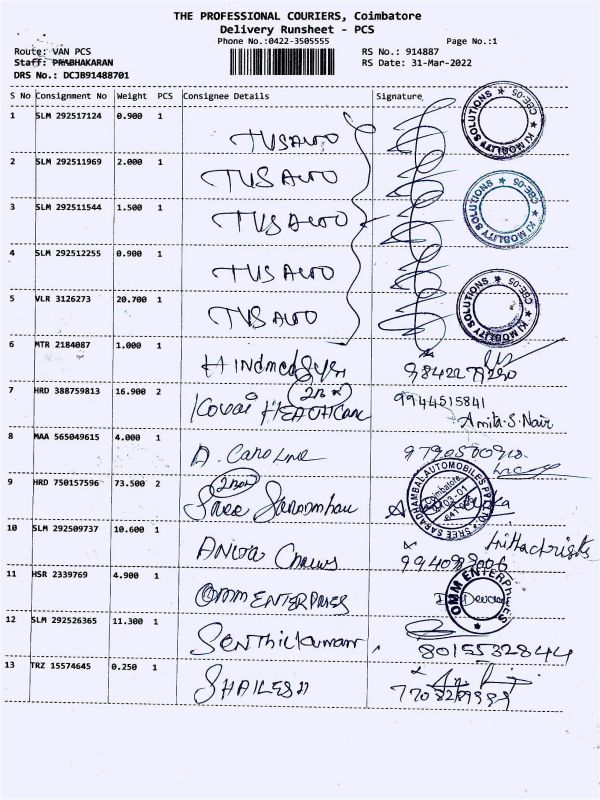 THE PROFESSIONAL COURIERS, Coimbatore
Delivery Runsheet - PCS
Phone No.:0422-3505555
Page No.:1
Route: VAN PCS
RS No.: 914887
Staff: PRABHAKARAN
RS Date: 31-Mar-2022
DRS No.: DCJB91488701
S No Consignment No Weight PCS Consignee Details Signature
1 SLM 292517124 0.900 1
TVS AUTO
2 SLM 292511969 2.000 1
TVS AUTO
3 SLM 292511544 1.500 1
TVS AUTO
4 SLM 292512255 0.900 1
TVS AUTO
5 VLR 3126273 20.700 1
TVS AUTO
KI MOBILITY SOLUTIONS ★ CBE-05
KI MOBILITY SOLUTIONS ★ CBE-05
KI MOBILITY SOLUTIONS ★ CBE-05
6 MTR 2184087 1.000 1
7 HRD 388759813 16.900 2
2 Box
Kovai HEALTHCare
9944515841
Amita.S.Nair
8 MAA 565049615 4.000 1
A. Caroline
9 HRD 750157596 73.500 2
2 Box
Sree
SREE SARADHAMBAL AUTOMOBILES PVT LTD
Coimbatore
10 SLM 292509737 10.600 1
11 HSR 2339769 4.900 1
OMM ENTERPRISES
OMM ENTERPRISES
12 SLM 292526365 11.300 1
Senthilkumar
8015532844
13 TRZ 15574645 0.250 1
SHAILESH